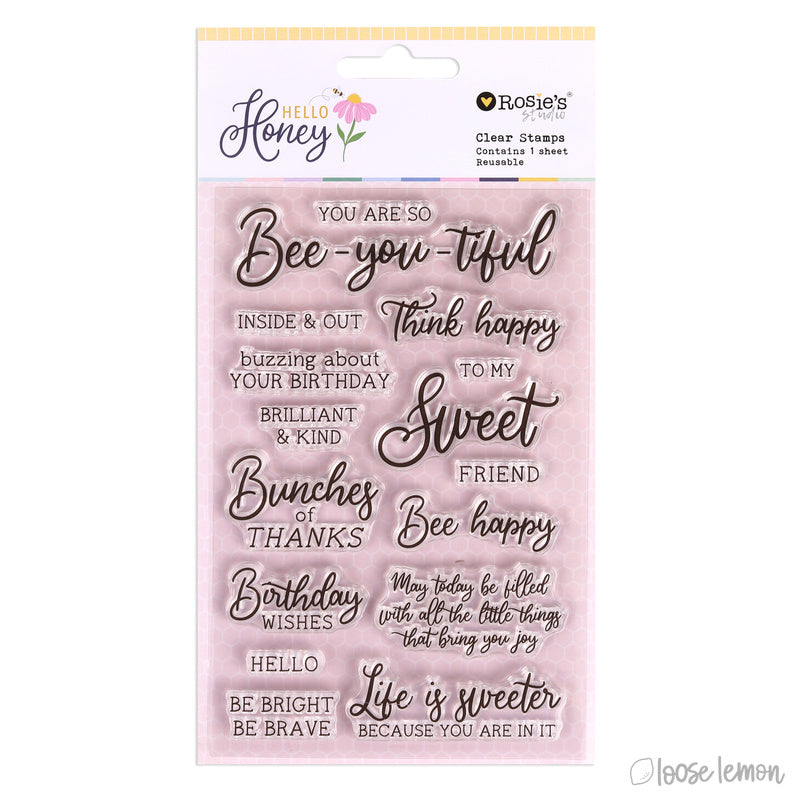 HELLO
Honey
Rosie's
studio
Clear Stamps
Contains 1 sheet
Reusable
YOU ARE SO
Bee-you-tiful
INSIDE & OUT
Think happy
buzzing about
YOUR BIRTHDAY
TO MY
Sweet
FRIEND
BRILLIANT
& KIND
Bunches
of
THANKS
Bee happy
Birthday
WISHES
May today be filled
with all the little things
that bring you joy
HELLO
BE BRIGHT
BE BRAVE
Life is sweeter
BECAUSE YOU ARE IN IT
loose lemon